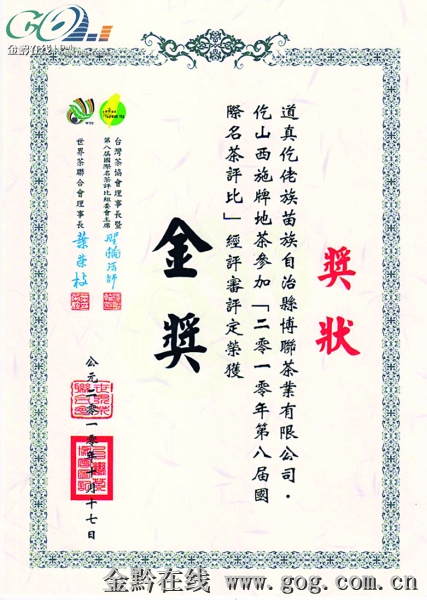 金黔在线
獎狀
道真仡佬族苗族自治縣博聯茶業有限公司·
仡山西施牌地茶參加「二零一零年第八届國
際名茶評比」經評審評定榮獲
金獎
台灣茶協會理事長暨
第八届國際名茶評比組委會主席
世界茶聯合會理事長
公元二零一零年十月十七日
金黔在线 www.gog.com.cn